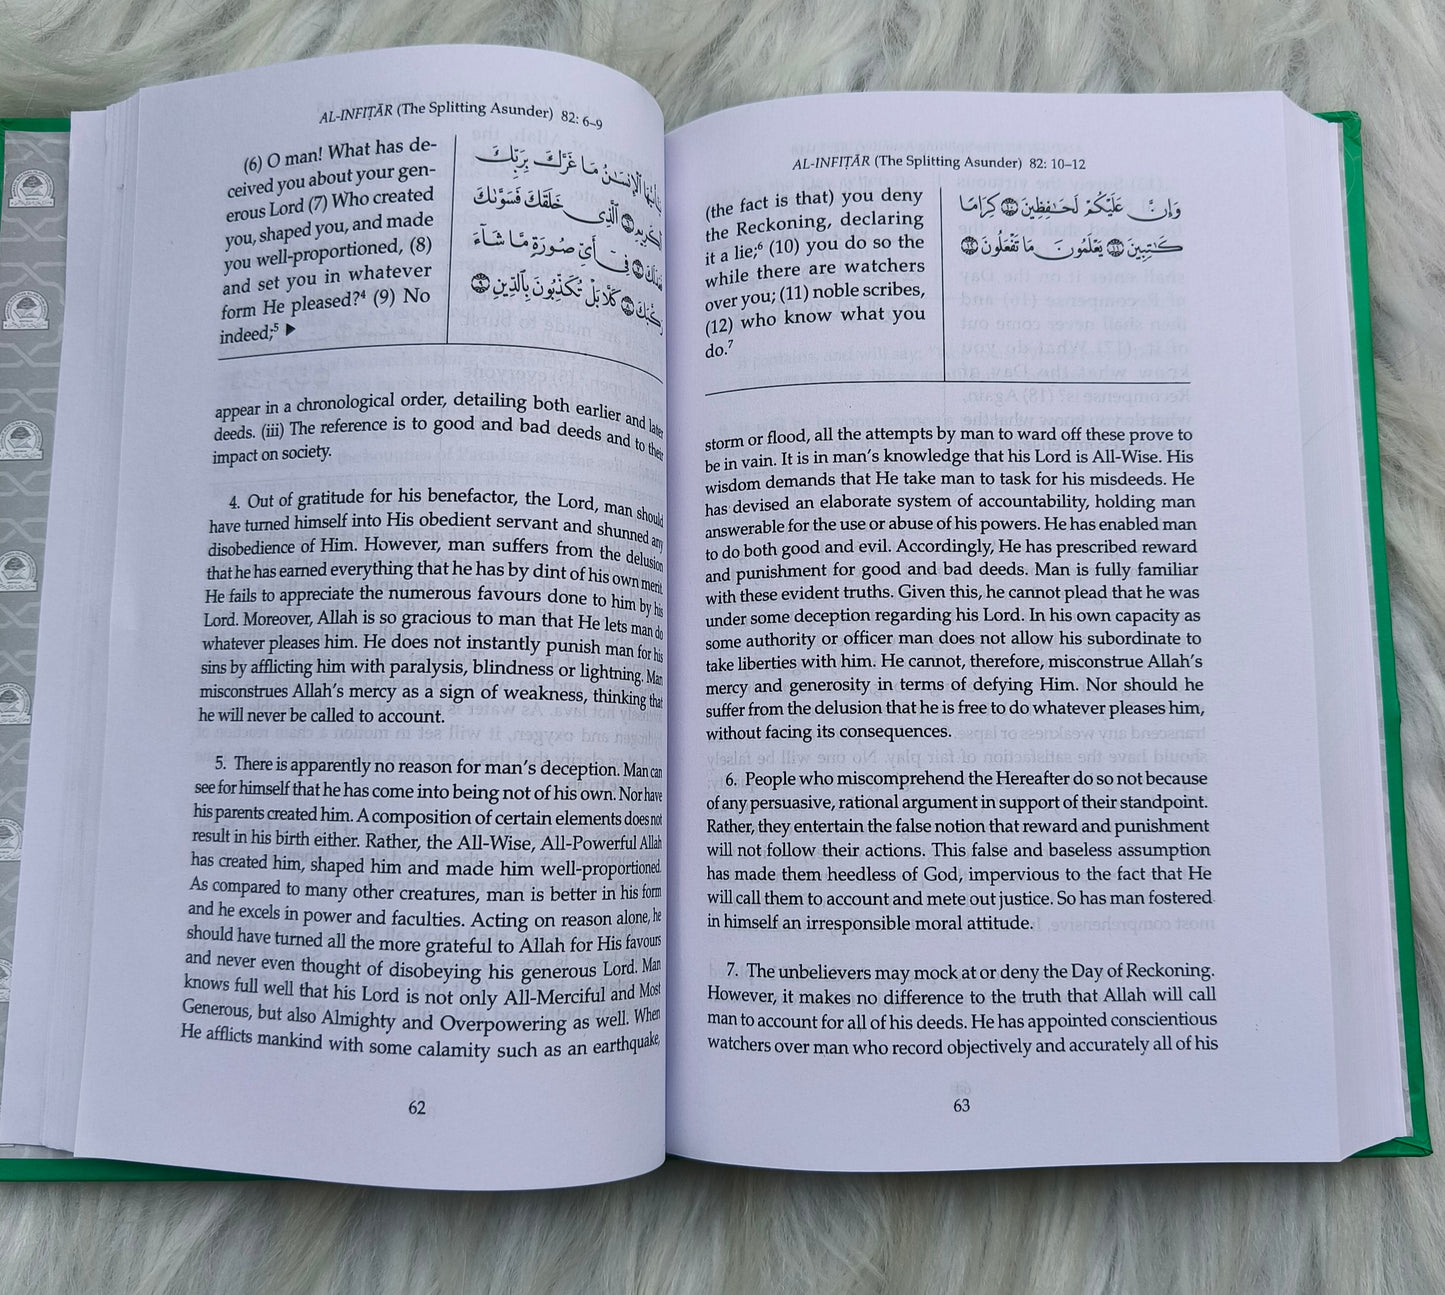 AL-INFIṬĀR (The Splitting Asunder) 82: 6–9
(6) O man! What has de-
ceived you about your gen-
erous Lord (7) Who created
you, shaped you, and made
you well-proportioned, (8)
and set you in whatever
form He pleased?⁴ (9) No
indeed;⁵ ▶
يَٰٓأَيُّهَا ٱلْإِنسَٰنُ مَا غَرَّكَ بِرَبِّكَ
ٱلْكَرِيمِ ۝٦ ٱلَّذِى خَلَقَكَ فَسَوَّىٰكَ
فَعَدَلَكَ ۝٧ فِىٓ أَىِّ صُورَةٍ مَّا شَآءَ
رَكَّبَكَ ۝٨ كَلَّا بَلْ تُكَذِّبُونَ بِٱلدِّينِ ۝٩
appear in a chronological order, detailing both earlier and later
deeds. (iii) The reference is to good and bad deeds and to their
impact on society.
4. Out of gratitude for his benefactor, the Lord, man should
have turned himself into His obedient servant and shunned any
disobedience of Him. However, man suffers from the delusion
that he has earned everything that he has by dint of his own merit.
He fails to appreciate the numerous favours done to him by his
Lord. Moreover, Allah is so gracious to man that He lets man do
whatever pleases him. He does not instantly punish man for his
sins by afflicting him with paralysis, blindness or lightning. Man
misconstrues Allah's mercy as a sign of weakness, thinking that
he will never be called to account.
5. There is apparently no reason for man's deception. Man can
see for himself that he has come into being not of his own. Nor have
his parents created him. A composition of certain elements does not
result in his birth either. Rather, the All-Wise, All-Powerful Allah
has created him, shaped him and made him well-proportioned.
As compared to many other creatures, man is better in his form
and he excels in power and faculties. Acting on reason alone, he
should have turned all the more grateful to Allah for His favours
and never even thought of disobeying his generous Lord. Man
knows full well that his Lord is not only All-Merciful and Most
Generous, but also Almighty and Overpowering as well. When
He afflicts mankind with some calamity such as an earthquake,
62
AL-INFIṬĀR (The Splitting Asunder) 82: 10–12
(the fact is that) you deny
the Reckoning, declaring
it a lie;⁶ (10) you do so the
while there are watchers
over you; (11) noble scribes,
(12) who know what you
do.⁷
وَإِنَّ عَلَيْكُمْ لَحَٰفِظِينَ ۝١٠ كِرَامًا
كَٰتِبِينَ ۝١١ يَعْلَمُونَ مَا تَفْعَلُونَ ۝١٢
storm or flood, all the attempts by man to ward off these prove to
be in vain. It is in man's knowledge that his Lord is All-Wise. His
wisdom demands that He take man to task for his misdeeds. He
has devised an elaborate system of accountability, holding man
answerable for the use or abuse of his powers. He has enabled man
to do both good and evil. Accordingly, He has prescribed reward
and punishment for good and bad deeds. Man is fully familiar
with these evident truths. Given this, he cannot plead that he was
under some deception regarding his Lord. In his own capacity as
some authority or officer man does not allow his subordinate to
take liberties with him. He cannot, therefore, misconstrue Allah's
mercy and generosity in terms of defying Him. Nor should he
suffer from the delusion that he is free to do whatever pleases him,
without facing its consequences.
6. People who miscomprehend the Hereafter do so not because
of any persuasive, rational argument in support of their standpoint.
Rather, they entertain the false notion that reward and punishment
will not follow their actions. This false and baseless assumption
has made them heedless of God, impervious to the fact that He
will call them to account and mete out justice. So has man fostered
in himself an irresponsible moral attitude.
7. The unbelievers may mock at or deny the Day of Reckoning.
However, it makes no difference to the truth that Allah will call
man to account for all of his deeds. He has appointed conscientious
watchers over man who record objectively and accurately all of his
63